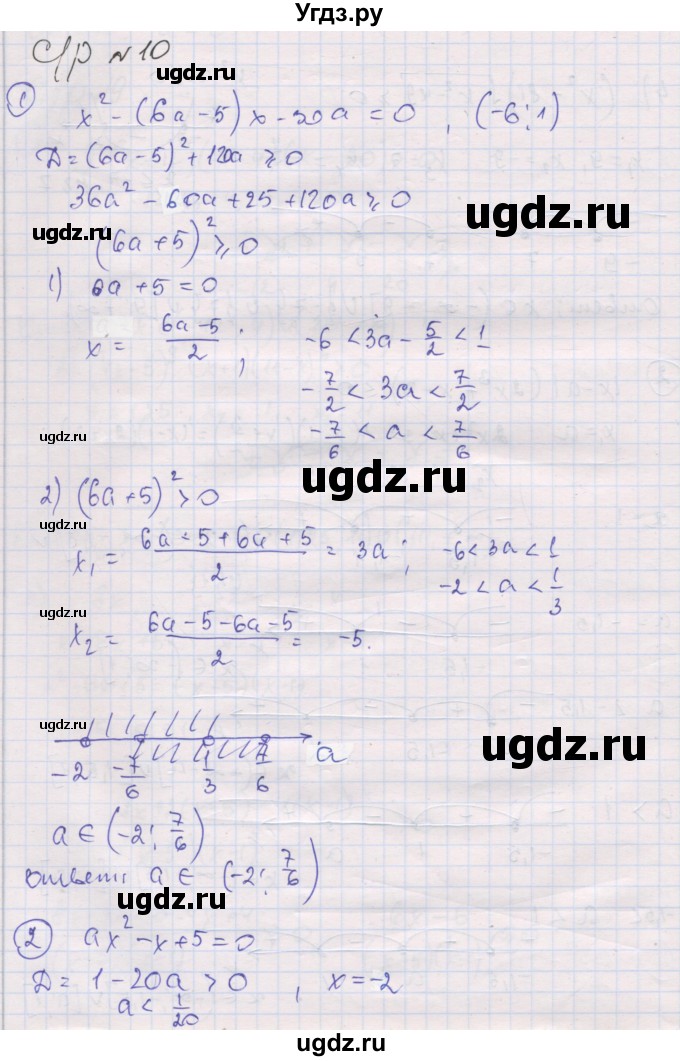 Угдз.ру
С/р №10
ugdz.ru
① x² - (6a - 5)x - 30a = 0, (-6; 1)
Д = (6a - 5)² + 120a ⩾ 0
36a² - 60a + 25 + 120a ⩾ 0
ugdz.ru
ugdz.ru
(6a + 5)² ⩾ 0
1) 6a + 5 = 0
x = (6a - 5)/2 ; -6 < 3a - 5/2 < 1
ugdz.ru
-7/2 < 3a < 7/2
-7/6 < a < 7/6
ugdz.ru
ugdz.ru
2) (6a + 5)² > 0
ugdz.ru
x₁ = (6a - 5 + 6a + 5)/2 = 3a ; -6 < 3a < 1
-2 < a < 1/3
ugdz.ru
x₂ = (6a - 5 - 6a - 5)/2 = -5.
ugdz.ru
ugdz.ru
-2 -7/6 1/3 7/6 a
ugdz.ru
a ∈ (-2; 7/6)
Ответ: a ∈ (-2; 7/6)
ugdz.ru
② ax² - x + 5 = 0
Д = 1 - 20a > 0, x = -2
a < 1/20
ugdz.ru
ugdz.ru
Угдз.ру